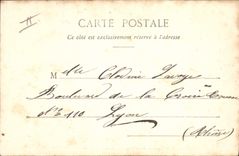 CARTE POSTALE
Ce côté est exclusivement réservé à l'adresse.
Mlle Clodine
Boulevard de la Croix Rousse
N° 110 Lyon
(Rhône)